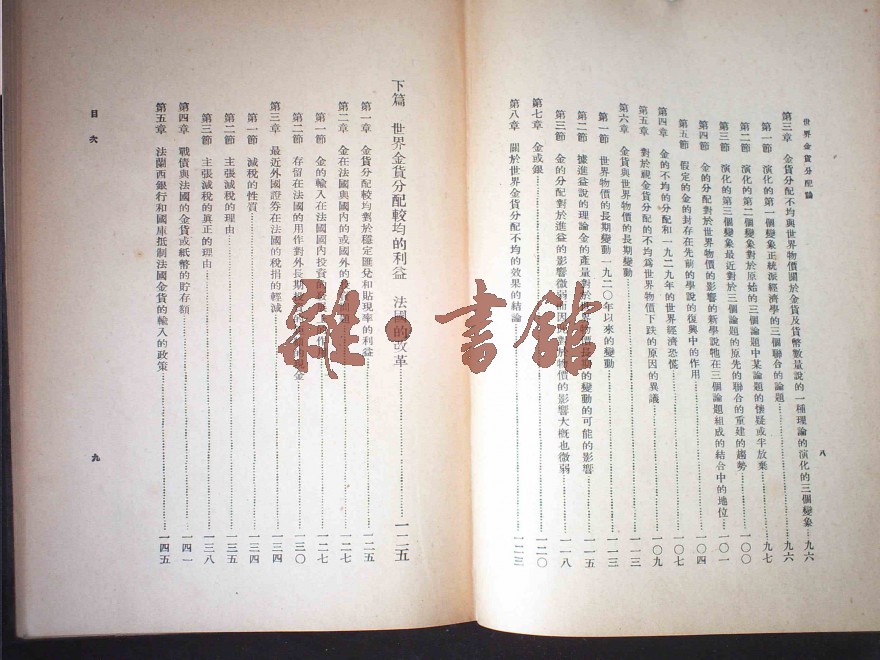 世界金貨分配論
八
第三章 金貨分配不均與世界物價關於金貨及貨幣數量說的一種理論的演化的三個變象…九六
第一節 演化的第一個變象正統派經濟學的三個聯合的論題…九六
第二節 演化的第二個變象對於原始的三個論題中某論題的懷疑或半放棄…九七
第三節 演化的第三個變象最近對於三個論題的原先的聯合的重建的趨勢…一〇〇
第四節 金的分配對於世界物價的影響的新學說牠在三個論題組成的結合中的地位…一〇一
第五節 假定的金的封存在先前的學說的復興中的作用…一〇四
第四章 金的不均的分配和一九二九年的世界經濟恐慌…一〇七
第五章 對於視金貨分配的不均爲世界物價下跌的原因的異議…一〇九
第六章 金貨與世界物價的長期變動…一一三
第一節 世界物價的長期變動一九二〇年以來的變動…一一三
第二節 據進益說的理論金的產量對於世界物價長期的變動的可能的影響…一一五
第三節 金的分配對於進益的影響微弱因而對於物價的影響大概也微弱…一一八
第七章 金或銀…一二〇
第八章 關於世界金貨分配不均的效果的結論…一二三
下篇 世界金貨分配較均的利益 法國的改革…一二五
第一章 金貨分配較均對於穩定匯兌和貼現率的利益…一二五
第二章 金在法國與國內的或國外的…一二七
第一節 金的輸入在法國國內投資的…一二七
第二節 存留在法國的用作對外長期投資的…現金…一三〇
第三章 最近外國證券在法國的稅捐的輕減…一三四
第一節 減稅的性質…一三四
第二節 主張減稅的理由…一三五
第三節 主張減稅的眞正的理由…一三八
第四章 戰債與法國的金貨或紙幣的貯存額…一四一
第五章 法蘭西銀行和國庫抵制法國金貨的輸入的政策…一四五
目次
九
雜·書館